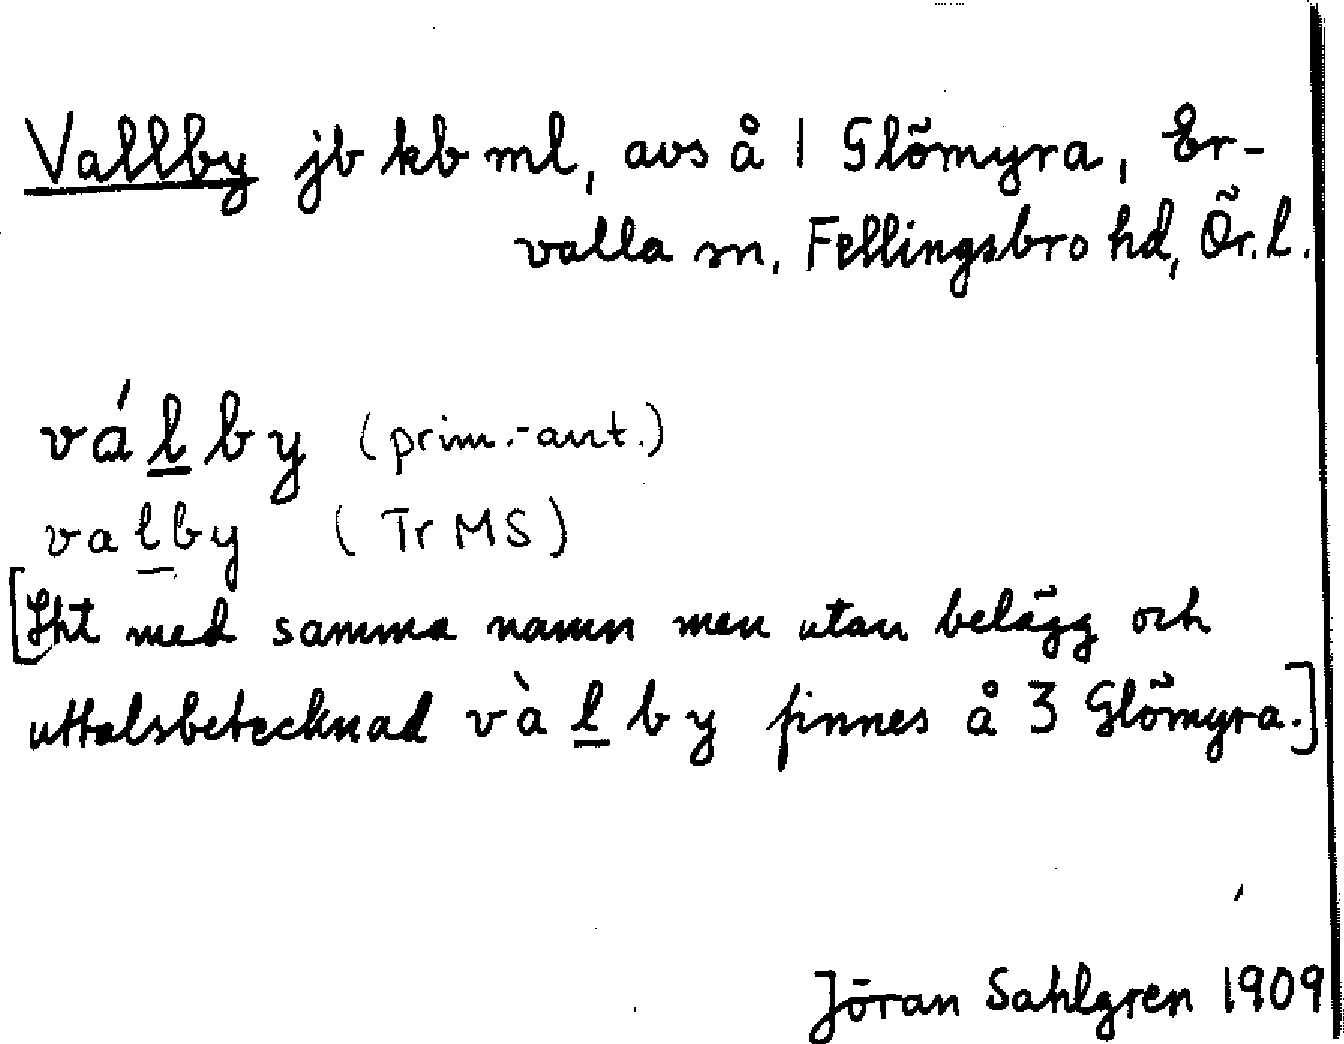 Vallby jb kb ml, avs å 1 Glömyra, Er-
valla sn, Fellingsbro hd, Ör. l.
válby (prim.-ant.)
valby (Tr MS)
[Iht med samma namn men utan belägg och
uttalsbetecknad vàlby finnes å 3 Glömyra.]
Jöran Sahlgren 1909